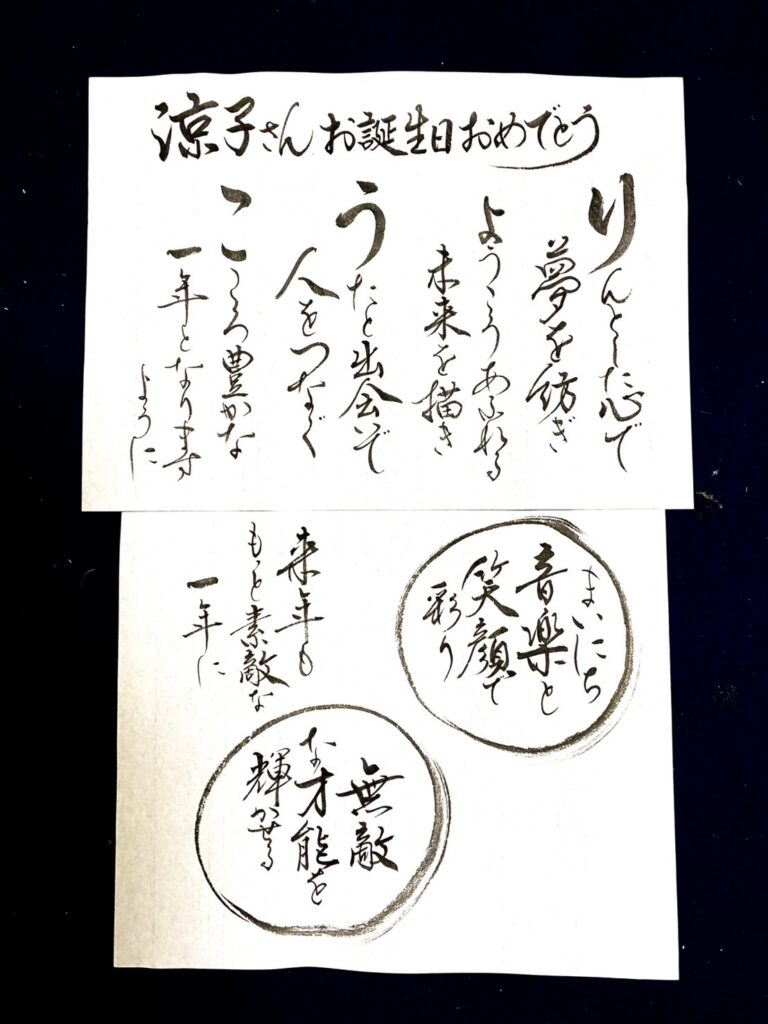 涼子さんお誕生日おめでとう
りんとした心で
夢を紡ぎ
ようこうあふれる
未来を描き
うたと出会いで
人をつなぐ
こころ豊かな
一年となります
ように
まいにち
音楽と
笑顔で
彩り
無敵
な才能を
輝かせる
来年も
もっと素敵な
一年に